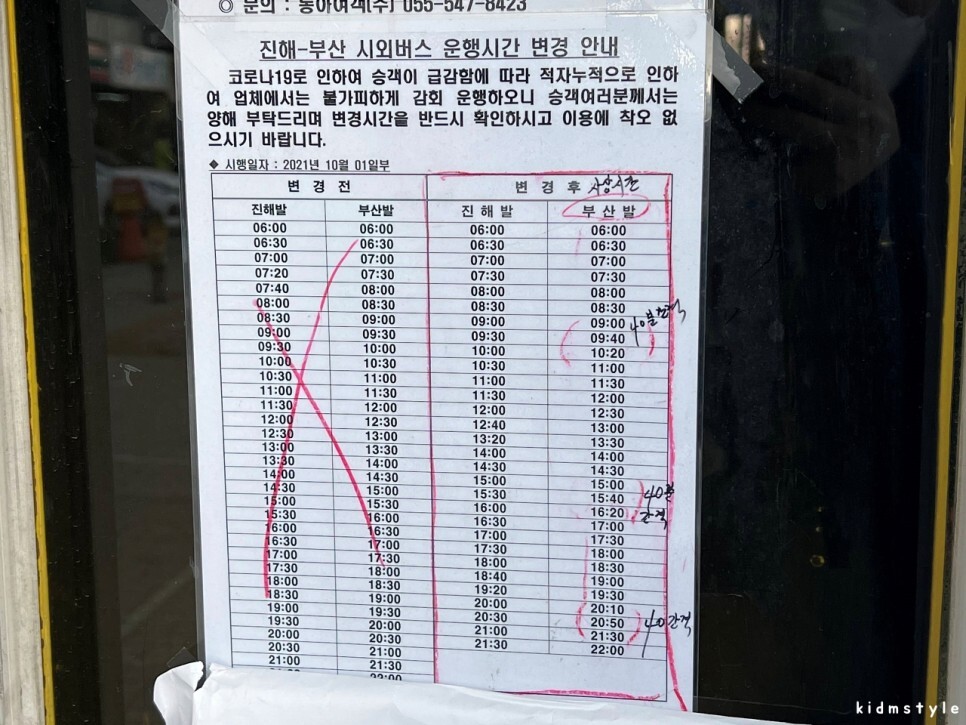 ◎ 문의 : 동아여객(주) 055-547-8423
진해-부산 시외버스 운행시간 변경 안내
코로나19로 인하여 승객이 급감함에 따라 적자누적으로 인하
여 업체에서는 불가피하게 감회 운행하오니 승객여러분께서는
양해 부탁드리며 변경시간을 반드시 확인하시고 이용에 착오 없
으시기 바랍니다.
◆ 시행일자 : 2021년 10월 01일부
변 경 전 변 경 후
진해발 부산발 진 해 발 부 산 발
06:00 06:00 06:00 06:00
06:30 06:30 06:30 06:30
07:00 07:00 07:00 07:00
07:20 07:30 07:30 07:30
07:40 08:00 08:00 08:00
08:00 08:30 08:30 08:30
08:30 09:00 09:00 09:00 40분간격
09:00 09:30 09:30 09:40
09:30 10:00 10:00 10:20
10:00 10:30 10:30 11:00
10:30 11:00 11:00 11:30
11:00 11:30 11:30 12:00
11:30 12:00 12:00 12:30
12:00 12:30 12:40 13:00
12:30 13:00 13:20 13:30
13:00 13:30 14:00 14:00
13:30 14:00 14:30 14:30
14:00 14:30 15:00 15:00
14:30 15:00 15:30 15:40 40분
15:00 15:30 16:00 16:20 간격
15:30 16:00 16:30 17:00
16:00 16:30 17:00 17:30
16:30 17:00 17:30 18:00
17:00 17:30 18:00 18:30
17:30 18:00 18:40 19:00
18:00 18:30 19:20 19:30
18:30 19:00 20:00 20:10
19:00 19:30 20:30 20:50 40간격
19:30 20:00 21:00 21:30
20:00 20:30 21:30 22:00
20:30 21:00
21:00 21:30
22:00
kidmstyle